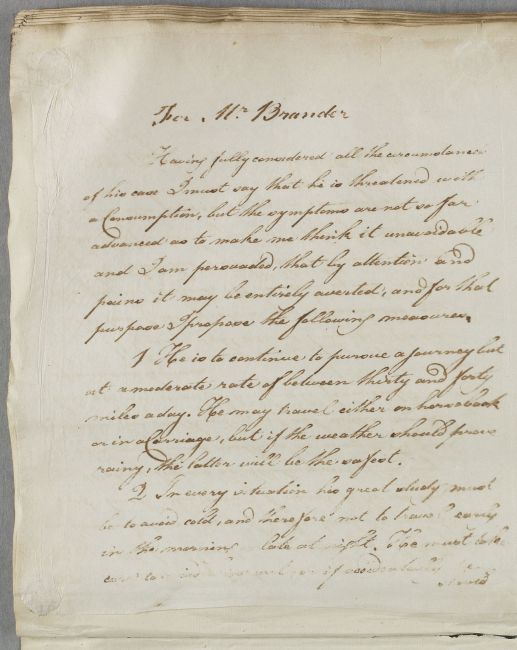 For Mr Brander
Having fully considered all the circumstances
of his case I must say that he is threatened with
a Consumption, but the symptoms are not so far
advanced as to make me think it unavoidable
and I am persuaded, that by attention and
pains it may be entirely averted, and for that
purpose I propose the following measures.
1 He is to continue to pursue a journey but
at a moderate rate of between thirty and forty
miles a day. He may travel either on horseback
or in a Carriage, but if the weather should prove
rainy, the latter will be the safest.
2 In every situation his great study must
be to avoid cold, and therefore not to travel early
in the morning late at night. He must take
care to if accidentally